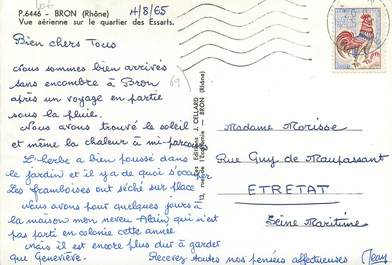 P.6446 - BRON (Rhône)
Vue aérienne sur le quartier des Essarts.
4/8/65
Bien chers Tous
Nous sommes bien arrivés
sans encombre à Bron
après un voyage en partie
sous la pluie.
Nous avons trouvé le soleil
et même la chaleur à mi-parcours
L'herbe a bien poussé dans
le jardin et il y a de quoi s'occuper
Les framboises ont séché sur place
Nous avons pour quelques jours à
la maison mon neveu Alain qui n'est
pas parti en colonie cette année
mais il est encore plus dur à garder
que Geneviève. Recevez toutes nos pensées affectueuses
Jean
69
Les Editions J. CELLARD
BRON (Rhône)
Madame Morisse
Rue Guy de Maupassant
ETRETAT
Seine Maritime